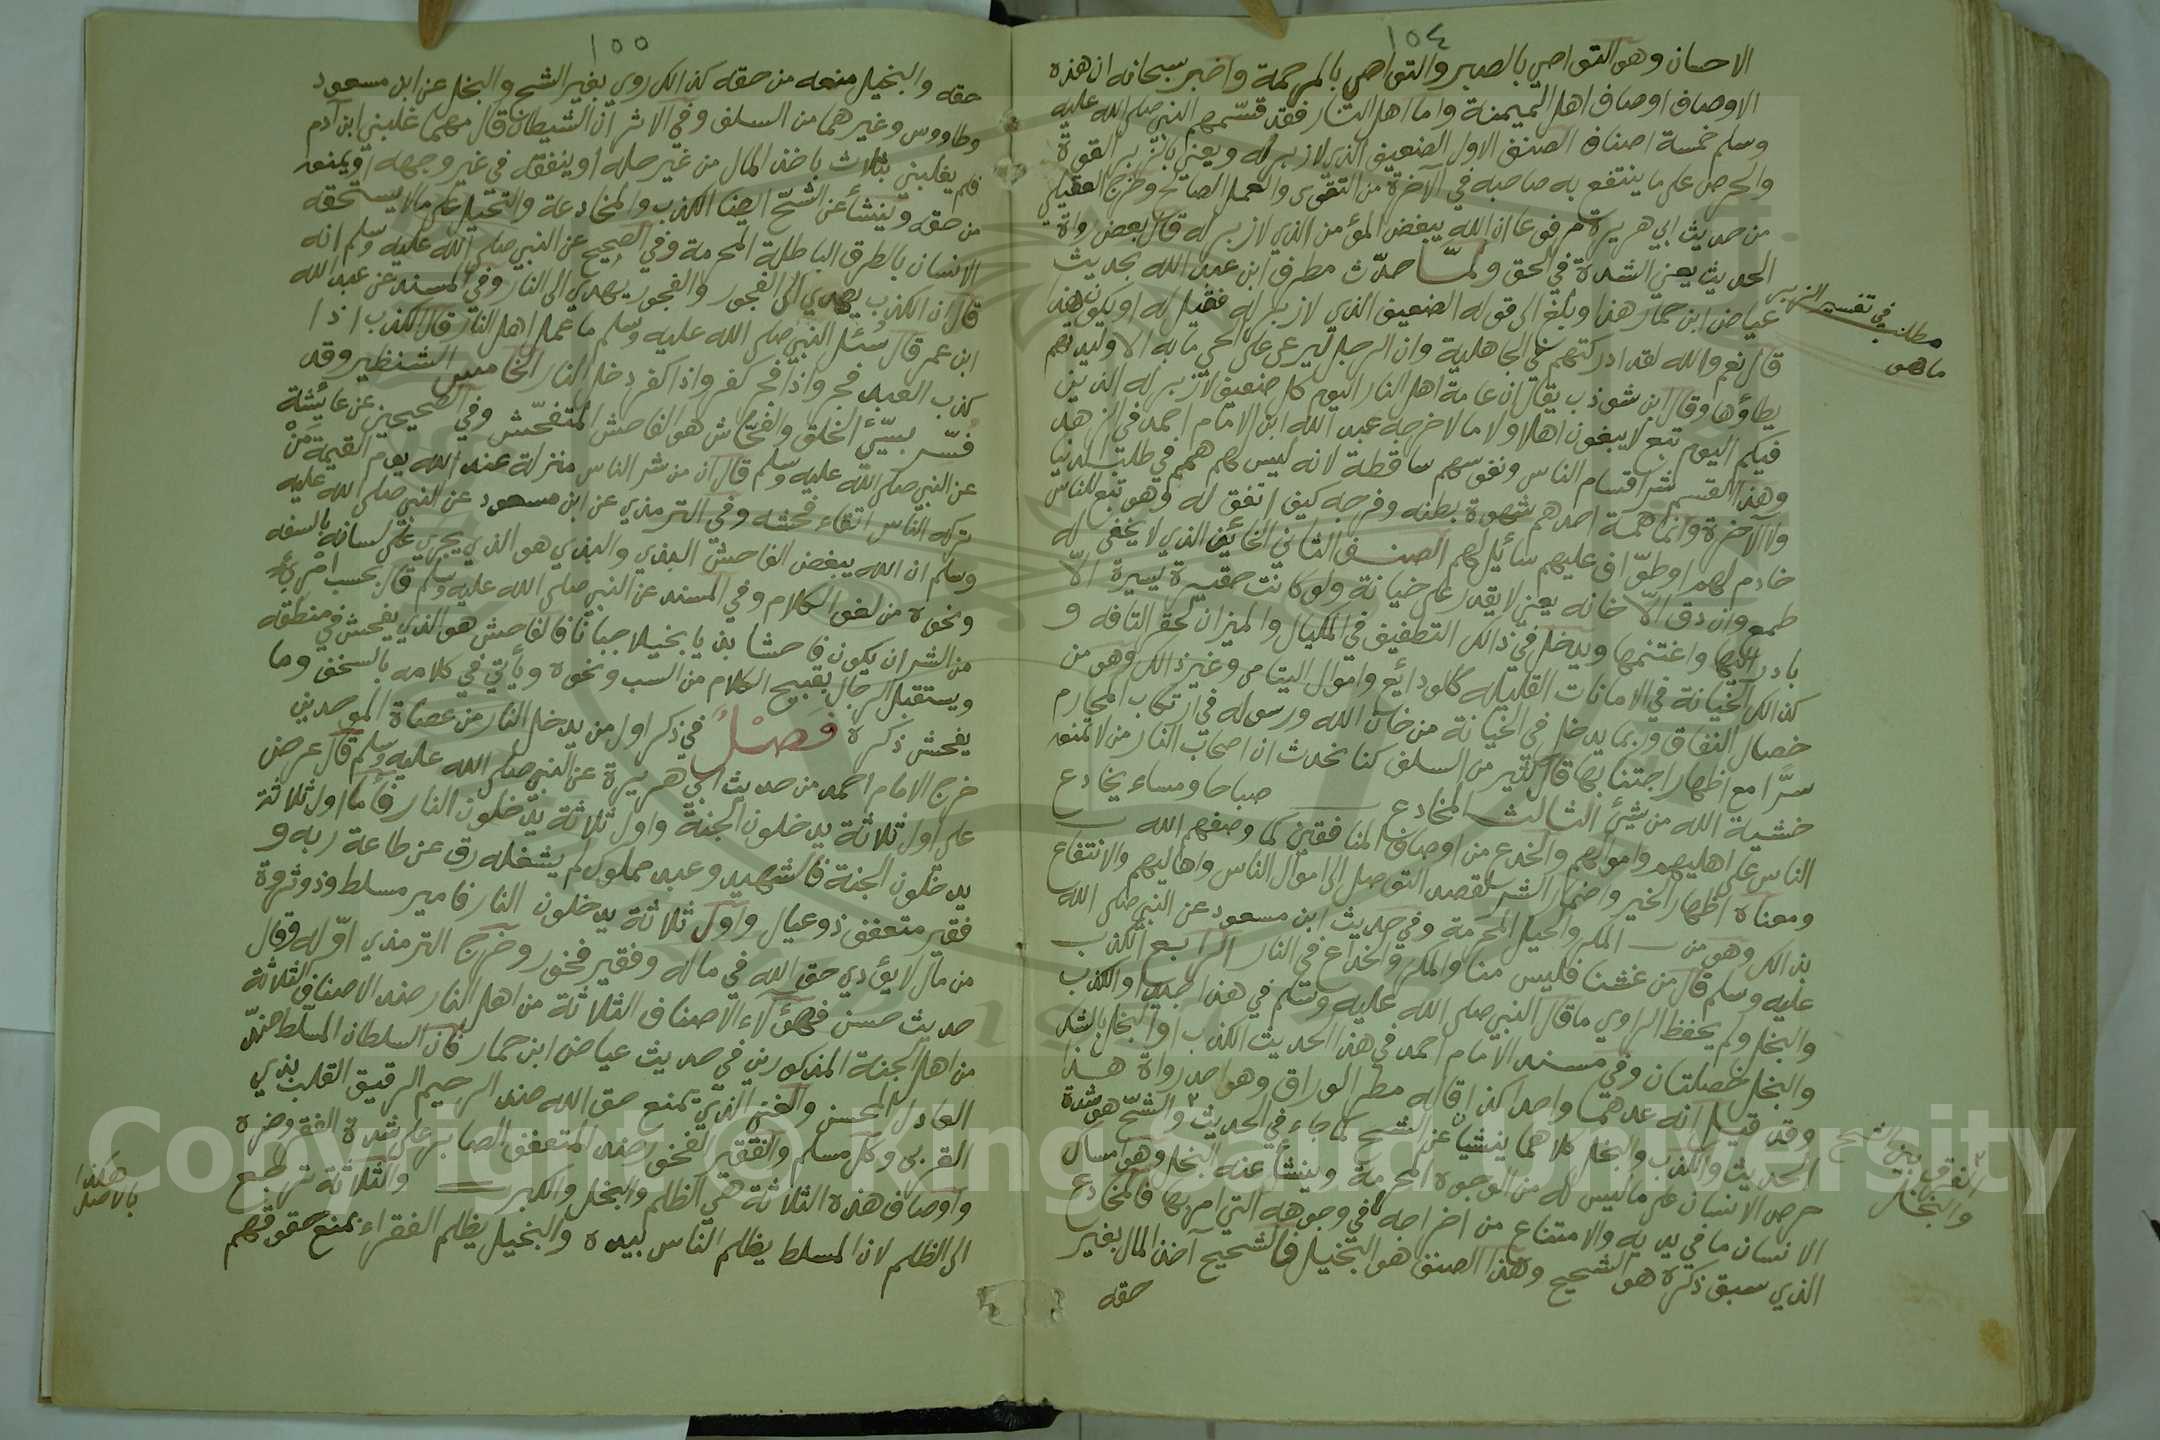 ١٥٤
الاحسان وهو التواصي بالصبر والتواصي بالمرحمة واخبر سبحانه ان هذه
الاوصاف اوصاف اهل الميمنة واما اهل النار فقد قسمهم النبي صلى الله عليه
وسلم خمسة اصناف الصنف الاول الضعيف الذي لا زبر له ويعني بالزبر القوة
والحرص على ما ينتفع به صاحبه في الآخرة من التقوى والعمل الصالح وخرج العقيلي
من حديث ابي هريرة مرفوعا ان الله يبغض المؤمن الذي لا زبر له قال بعض رواة
الحديث يعني الشدة في الحق ولما حدث مطرف ابن عبد الله بحديث
عياض ابن حمار هذا وبلغ الى قوله الضعيف الذي لا زبر له فقيل له او يكون هذا
قال نعم والله لقد ادركتهم في الجاهلية وان الرجل ليرعى على الحي ما به الا وليدتهم
يطاؤها وقال ابن شوذب يقال ان عامة اهل النار اليوم كل ضعيف لا زبر له الذين
فيكم اليوم تبع لا يبغون اهلا ولا مالا خرجه عبد الله ابن الامام احمد في الزهد
وهذا القسم شر اقسام الناس ونفوسهم ساقطة لانه ليس لهم همم في طلب الدنيا
ولا الآخرة وانما همة احدهم شهوة بطنه وفرجه كيف اتفق له وهو تبع للناس
خادم لهم او طواف عليهم سائل لهم الصنف الثاني الخائن الذي لا يخفى له
طمع وان دق الا خانه يعني لا يقدر على خيانة ولو كانت حقيرة يسيرة الا
بادر اليها واغتنمها ويدخل في ذالك التطفيف في المكيال والميزان كحقر التافه و
كذالك الخيانة في الامانات القليلة كالودائع واموال اليتامى وغير ذالك وهو من
خصال النفاق وربما يدخل في الخيانة من خان الله ورسوله في ارتكاب المحارم
سرًّا مع اظهار اجتنابها قال كثير من السلف كنا نحدث ان اصحاب النار من لا تمنعه
خشية الله من شيئ الثالث المخادع صباحا ومساء يخادع
الناس على اهليهم واموالهم والخدع من اوصاف المنافقين كما وصفهم الله
ومعناه اظهار الخير واضمار الشر لقصد التوصل الى اموال الناس واهاليهم والانتفاع
بذالك وهو من المكر والحيل المحرمة وفي حديث ابن مسعود عن النبي صلى الله
عليه وسلم قال من غشنا فليس منا والمكر والخداع في النار الرابع الكذب
والبخل ولم يحفظ الراوي ما قال النبي صلى الله عليه وسلم في هذا الحديث او الكذب
والبخل خصلتان وفي مسند الامام احمد في هذا الحديث الكذب او البخل بالشك
وقد قيل انه عدهما واحدا كذا قاله مطر الوراق وهو احد رواة هذا
الحديث والكذب والبخل كلاهما ينشيان عن الشح كما جاء في الحديث ٢ والشح هو شدة
حرص الانسان على ما ليس له من الوجوه المحرمة وينشأ عنه البخل وهو مساك
الانسان ما في يديه والامتناع من اخراجه في وجوهه التي امر بها فالمخادع
الذي سبق ذكره هو الشحيح وهذا الصنف هو البخيل فالشحيح آخذ المال بغير
حقه
مطلب في تفسير الزبر
ما هو
٢ الفرق بين الشح
والبخل
١٥٥
حقه والبخيل منعه من حقه كذالك روي تفير الشح والبخل عن ابن مسعود
وطاووس وغيرهما من السلف وفي الاثر ان الشيطان قال مهما غلبني ابن آدم
فلم يغلبني بثلاث ياخذ المال من غير حله او ينفقه في غير وجهه او يمنعه
من حقه وينشأ عن الشح ايضا الكذب والمخادعة والتحيل على ما لا يستحقه
الانسان بالطرق الباطلة المحرمة وفي الصحيح عن النبي صلى الله عليه وسلم انه
قال ان الكذب يهدي الى الفجور والفجور يهدي الى النار وفي المسند عن عبد الله
ابن عمر قال سئل النبي صلى الله عليه وسلم ما عمل اهل النار قال الكذب اذا
كذب العبد فجر واذا فجر كفر واذا كفر دخل النار الخامس الشنظير وقد
فسر بسيئ الخلق والفحاش هو الفاحش المتفحش وفي الصحيحين عن عائشة
عن النبي صلى الله عليه وسلم قال ان من شر الناس منزلة عند الله يوم القيمة من
تركه الناس اتقاء فحشه وفي الترمذي عن ابن مسعود عن النبي صلى الله عليه
وسلم ان الله يبغض الفاحش البذي والبذي هو الذي يجري على لسانه بالسفه
ونحوه من لغو الكلام وفي المسند عن النبي صلى الله عليه وسلم قال بحسب امرئ
من الشر ان يكون فاحشا بذيا بخيلا جبانا فالفاحش هو الذي يفحش في منطقه
ويستقبل الرجال بقبيح الكلام من السب ونحوه ويأتي في كلامه بالسخف وما
يفحش ذكره فصل في ذكر اول من يدخل النار من عصاة الموحدين
خرج الامام احمد من حديث ابي هريرة عن النبي صلى الله عليه وسلم قال عرض
على اول ثلاثة يدخلون الجنة واول ثلاثة يدخلون النار فاما اول ثلاثة
يدخلون الجنة فالشهيد وعبد مملوك لم يشغله رق عن طاعة ربه و
فقير متعفف ذو عيال واول ثلاثة يدخلون النار فامير مسلط وذو ثروة
من مال لا يؤدي حق الله في ماله وفقير فخور وخرج الترمذي اوله وقال
حديث حسن فهؤلاء الاصناف الثلاثة من اهل النار ضد الاصناف الثلاثة
من اهل الجنة المذكورين في حديث عياض ابن حمار فان السلطان المسلط ضد
العادل المحسن والغني الذي يمنع حق الله ضد الرحيم الرقيق القلب بذي
القربى وكل مسلم والفقير الفخور ضد المتعفف الصابر على شدة الفقر وضره
واوصاف هذه الثلاثة هي الظلم والبخل والكبر والثلاثة ترجع
الى الظلم لان المسلط يظلم الناس بيده والبخيل يظلم الفقراء بمنع حقوقهم
هكذا
بالاصل
Copyright © King Saud University